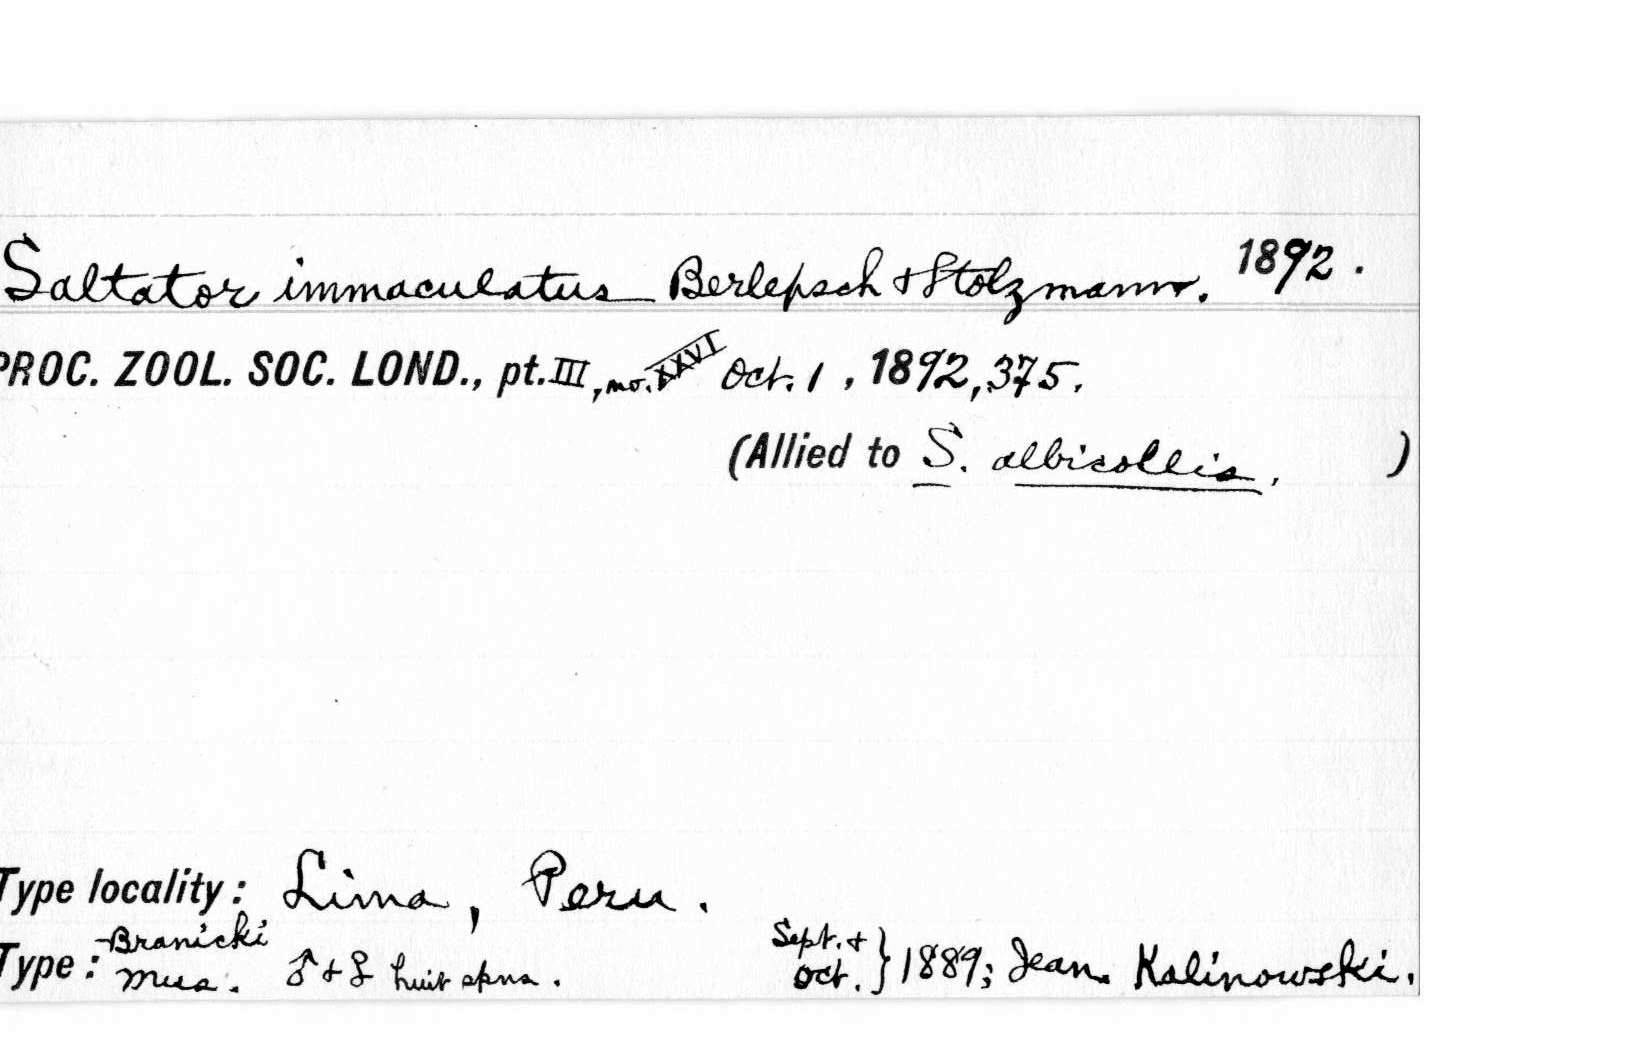 Saltator immaculatus Berlepsch & Stolzmann. 1892.
PROC. ZOOL. SOC. LOND., pt. III, no. XXVI Oct. 1, 1892, 375.
(Allied to S. albicollis, )
Type locality: Lima, Peru.
Type: Branicki Mus. ♂ & ♀ huit spns. Sept. & Oct. } 1889; Jean Kalinowski.